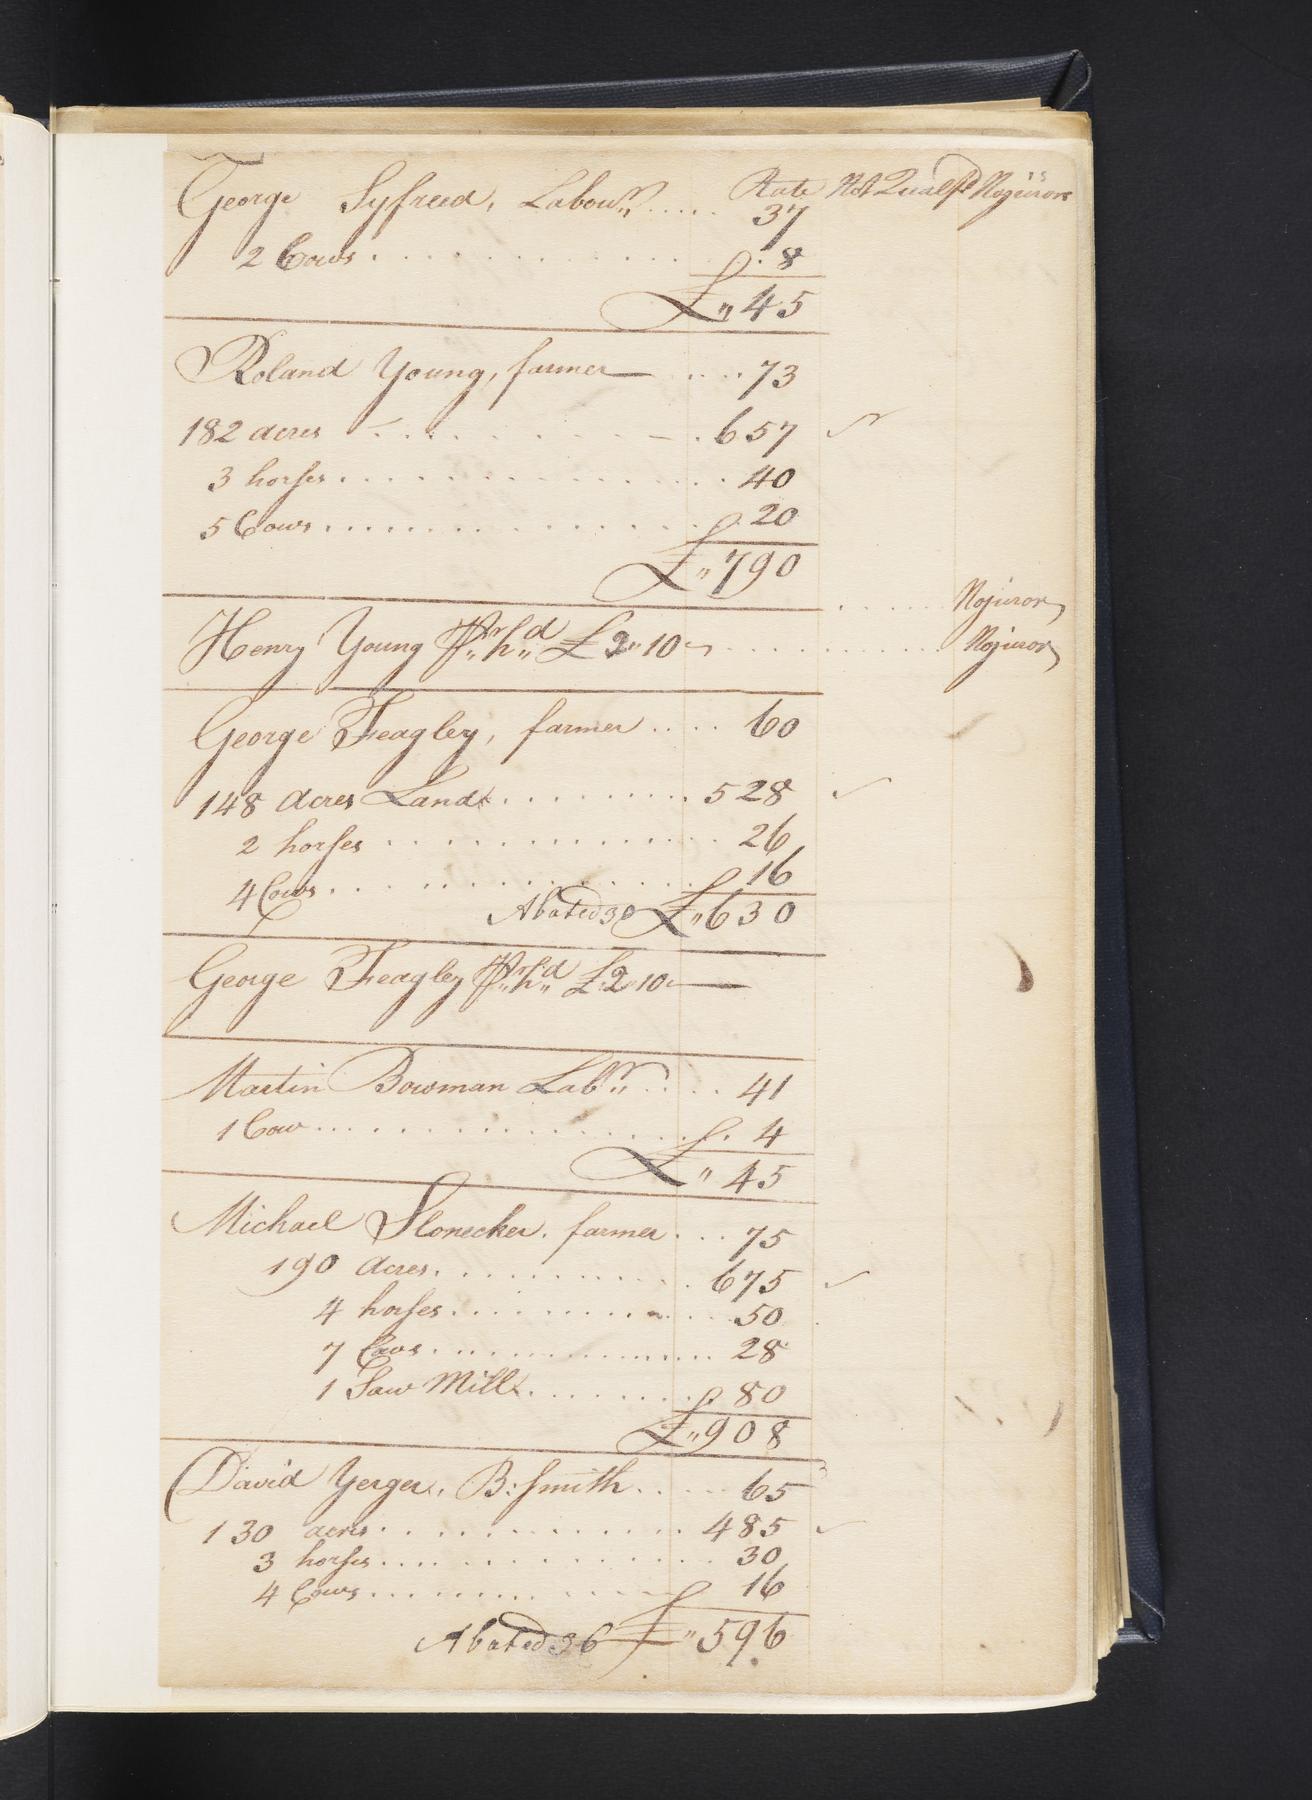 George Syfreed, Labour.. ..... Rate Not Qualif'd Nojurors
37
2 Cows . . . . . . . . . . . . . 8
£ " 45
Roland Young, farmer .... 73
182 acres . . . . . . . . . . 657
3 horses . . . . . . . . . . . . 40
5 Cows . . . . . . . . . . . . . 20
£ " 790
. . . . . . Nojuror
Henry Young Pr. h.d £2 " 10 . . . . . . . . . . . Nojuror
George Feagley, farmer .... 60
148 acres Land . . . . . . . . . 528
2 horses . . . . . . . . . . . . 26
4 Cows . . . . . . . . . . . . 16
Abated 30 £ " 630
George Feagley Pr. h.d £2 10
Martin Bowman Labr. .... 41
1 Cow . . . . . . . . . . . . . . 4
£ " 45
Michael Slonecker. farmer ... 75
190 acres . . . . . . . . . . 675
4 horses . . . . . . . . . . . 50
7 Cows . . . . . . . . . . . . 28
1 Saw Mill . . . . . . . . . 80
£ " 908
David Yerger, B: Smith .... 65
130 acres . . . . . . . . . . . 485
3 horses . . . . . . . . . . . 30
4 Cows . . . . . . . . . . . 16
Abated 36 £ " 596